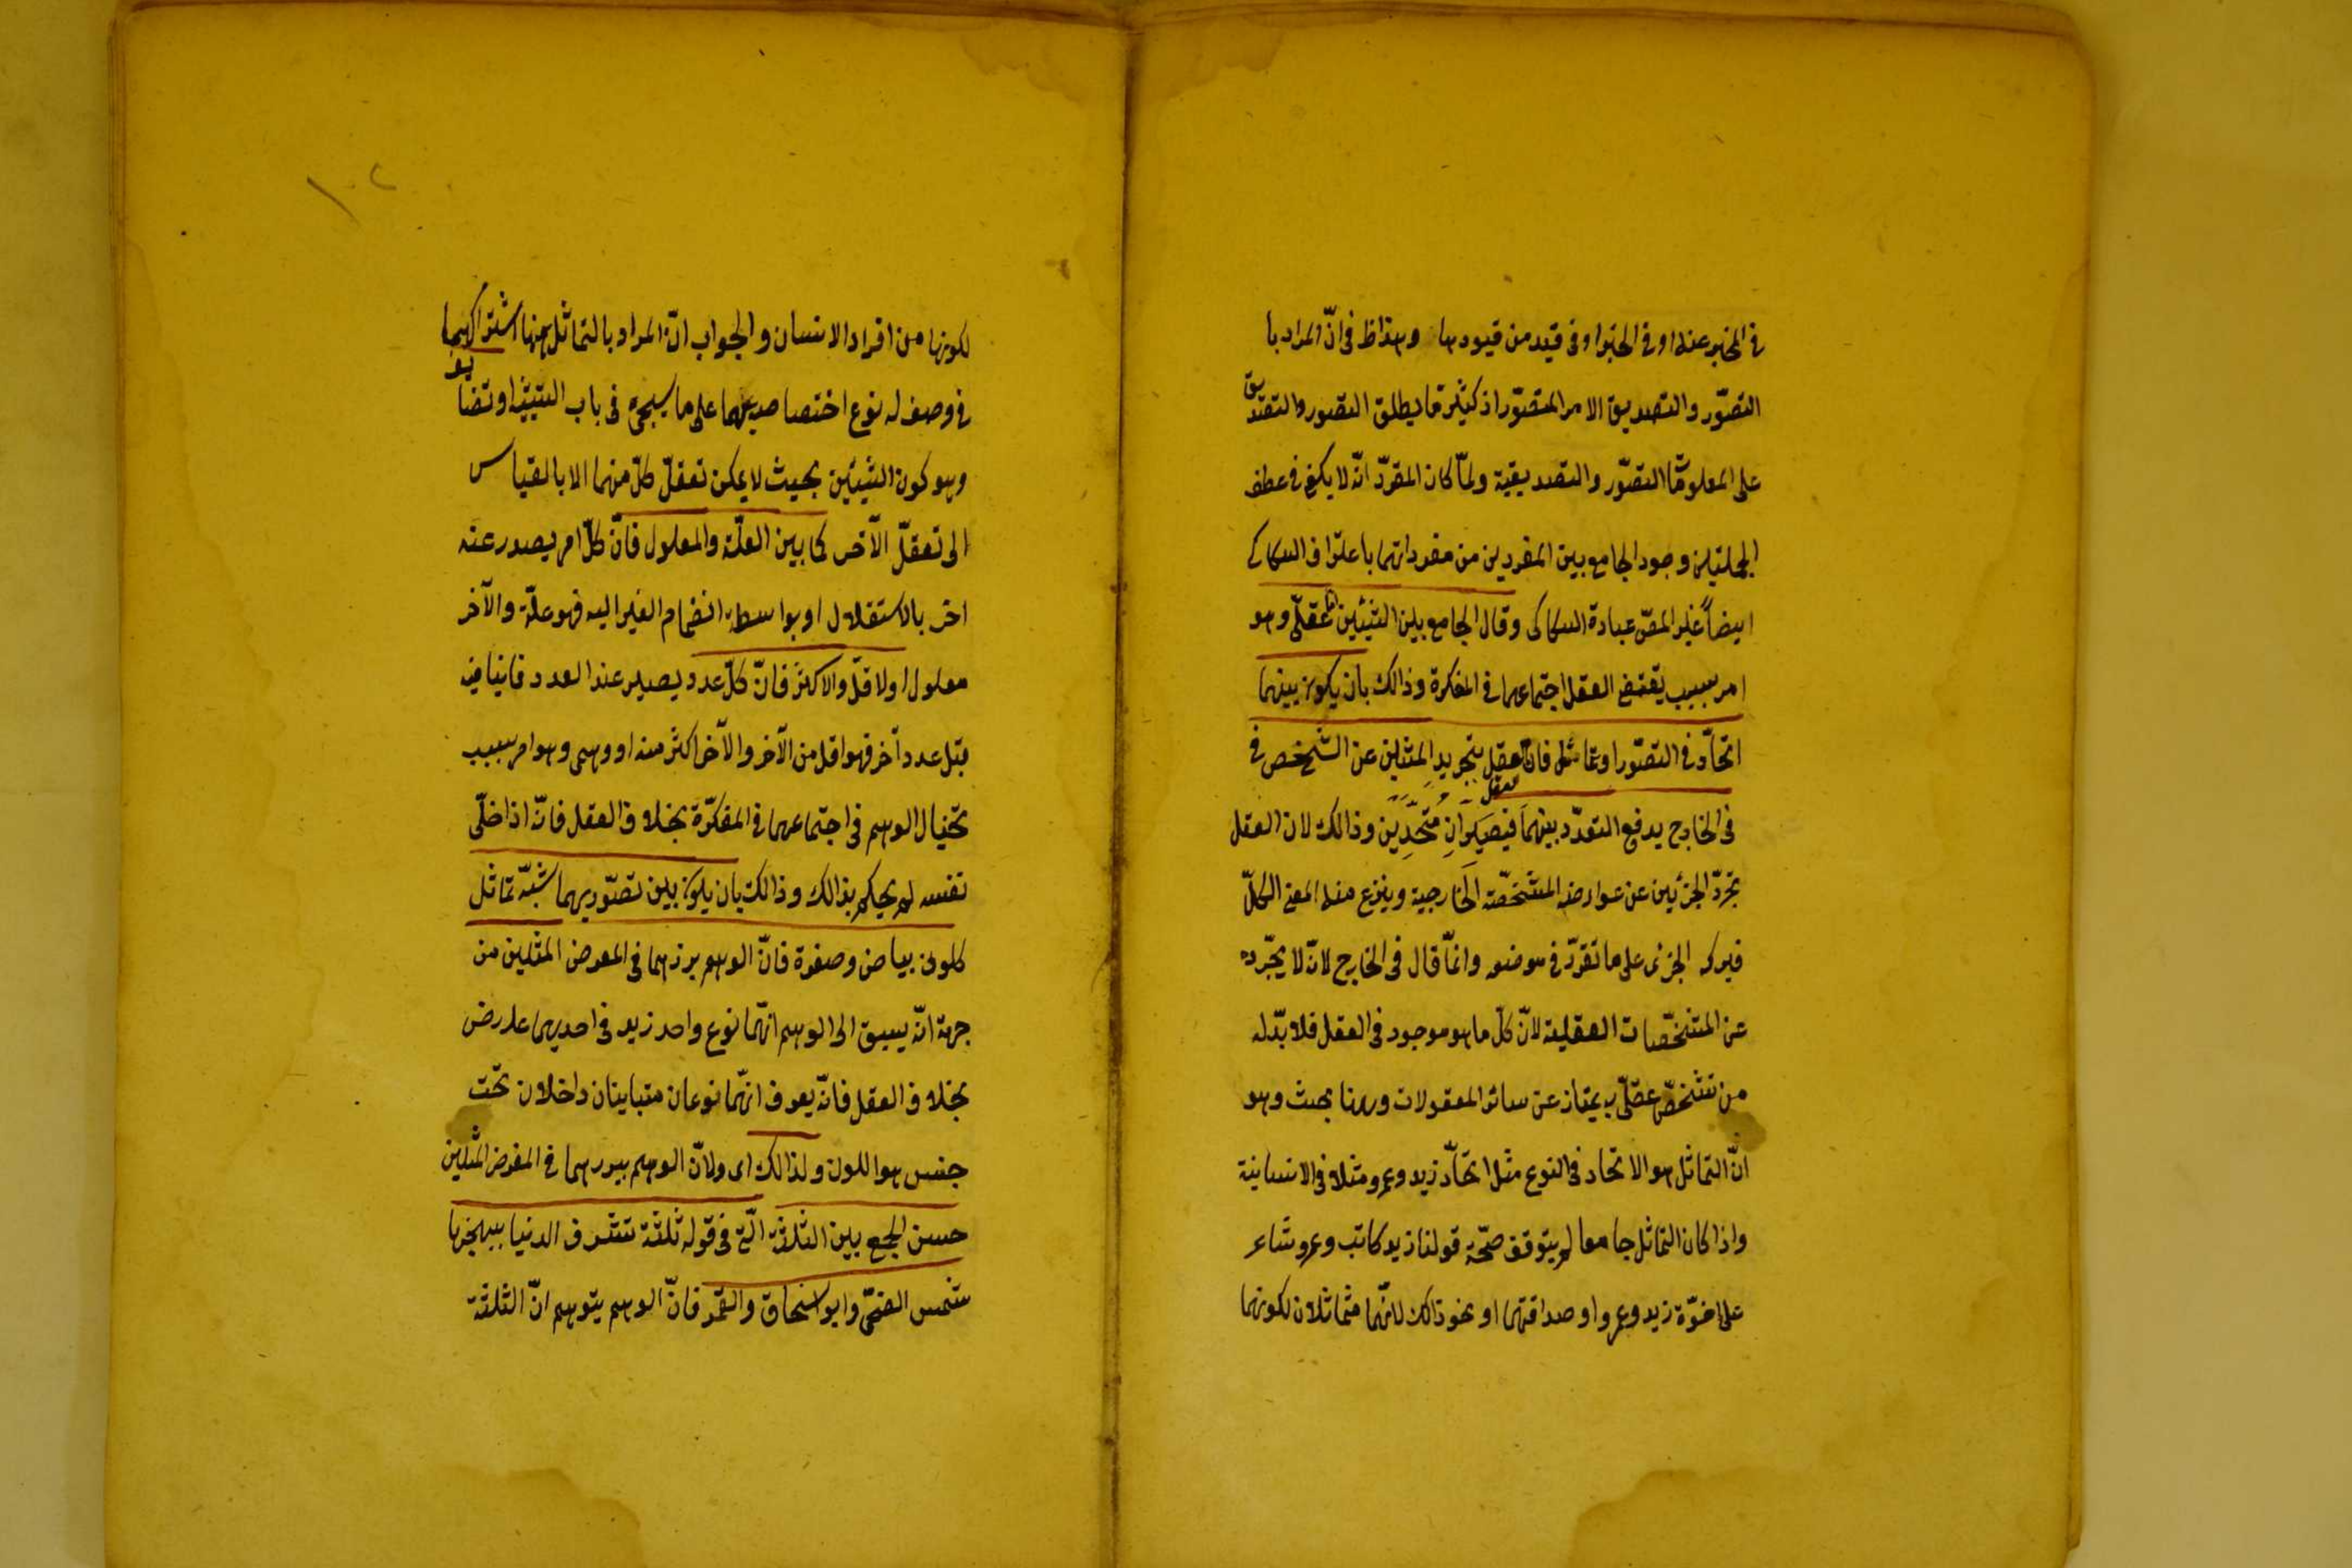 في المخبر عنه او في الخبر او في قيد من قيودها وهذا ظ في انّ المراد با
التصوّر والتصديق الامر المتصوّر اذ كثيرًا ما يطلق التصور والتصديق
على المعلومات التصوّر والتصديقية ولمّا كان المقرّر انّه لا يكفي في عطف
الجملتين وجود الجامع بين المفردين من مفرداتهما باعتراف السكاكي
ايضاً غيّر المصّ عبارة السكاكي وقال الجامع بين الشيئين امّا عقلّي وهو
امر بسبب يقتضي العقل اجتماعهما في المفكرة وذالك بان يكون بينهما
اتحاد في التصوّر او تماثل فان العقل بتجريد المثلين عن التشخص في
في الخارج يدفع التعدّد بينهمَا فيَصيَرانِ مُتّحدِين وذالك لان العقل
تجرّد الجزئين عن عوارضه المشخّصة الخارجية وينزع منه المعنى الكلّ
فيدركه الجزئى على ما تقرّر في موضعه وانمّا قال في الخارج لانّه لا يجّرده
عن المشخّصات العقلية لانّ كلّ ما هو موجود في العقل فلا بدّ له
من تشخّص عقلّي به يمتاز عن سائر المعقولات وههنا بحث وهو
انّ التماثل هو الاتحاد في النوع مثل اتحاد زيد وعمرو مثلا في الانسانية
واذا كان التماثل جامعا لم يتوقف صحّة قولنا زيد كاتب وعمرو شاعر
على اخوّة زيد وعمرو او صداقتهما او نحو ذالك لانّهما متماثلان لكونهما
١٠٢
لكونهما من افراد الانسان والجواب انّ المراد بالتماثل ههنا اشتراكهما
في وصف له نوع اختصاص بهما على ما سيجئ في باب التشبيه او تضايف
وهو كون الشيئين بحيث لا يمكن تعقلّ كلّ منهما الا بالقياس
الى تعقلّ الآخر كما بين العلّة والمعلول فانّ كلّ امر يصدر عنه
اخر بالاستقلال او بواسطة انضمام الغير اليه فهو علّة والآخر
معلول او لاقلّ والاكثر فانّ كلّ عدد يصير عند العدد فانيا
قبل عدد آخر فهو اقل من الآخر والآخر اكثر منه او وهمى وهو امر بسبب
تحيال الوهم في اجتماعهما في المفكرّة بخلاف العقل فانّه اذا خلّى
نفسه لم يحكم بذالك وذالك بان يكون بين تصوّريهما شبه تماثل
كلونى بياض وصفرة فانّ الوهم يبرزهما في المعرض المثلين من
جهة انّه يسبق الى الوهم انّهما نوع واحد زيد في احديهما عارض
بخلاف العقل فانّه يعرف انّهما نوعان متباينان داخلان تحت
جنس هو اللون ولذالك اى ولانّ الوهم يبررهما في المعرض المثلين
حسن الجمع بين الثلثة الّتي في قوله ثلثة تشرف الدنيا ببهجتها
شمس الضحّى وابو اسحاق والقمر فانّ الوهم يتوهم انّ الثلثة